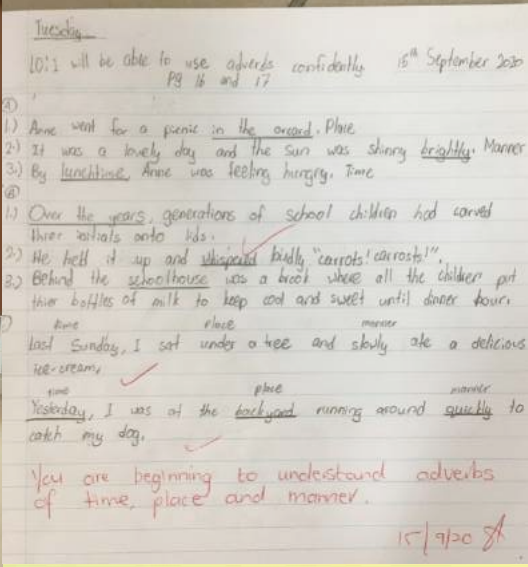 Tuesday
LO:I will be able to use adverbs confidently 15th September 2020
Pg 16 and 17
A
1.) Anne went for a picnic in the orcard. Place
2.) It was a lovely day and the sun was shinny brightly. Manner
3.) By lunchtime, Anne was feeling hungry. Time
B
1.) Over the years, generations of school children had carved
thier initials onto lids.
2.) He held it up and whisperd loudly "carrots! carrosts!".
3.) Behind the schoolhouse was a brook where all the children put
thier bottles of milk to keep cool and sweet until dinner hour.
time place manner
Last Sunday, I sat under a tree and slowly ate a delicious
ice-cream.
time place manner
Yesterday, I was at the backyard running around quickly to
catch my dog.
You are beginning to understand adverbs
of time, place and manner.
15/9/20